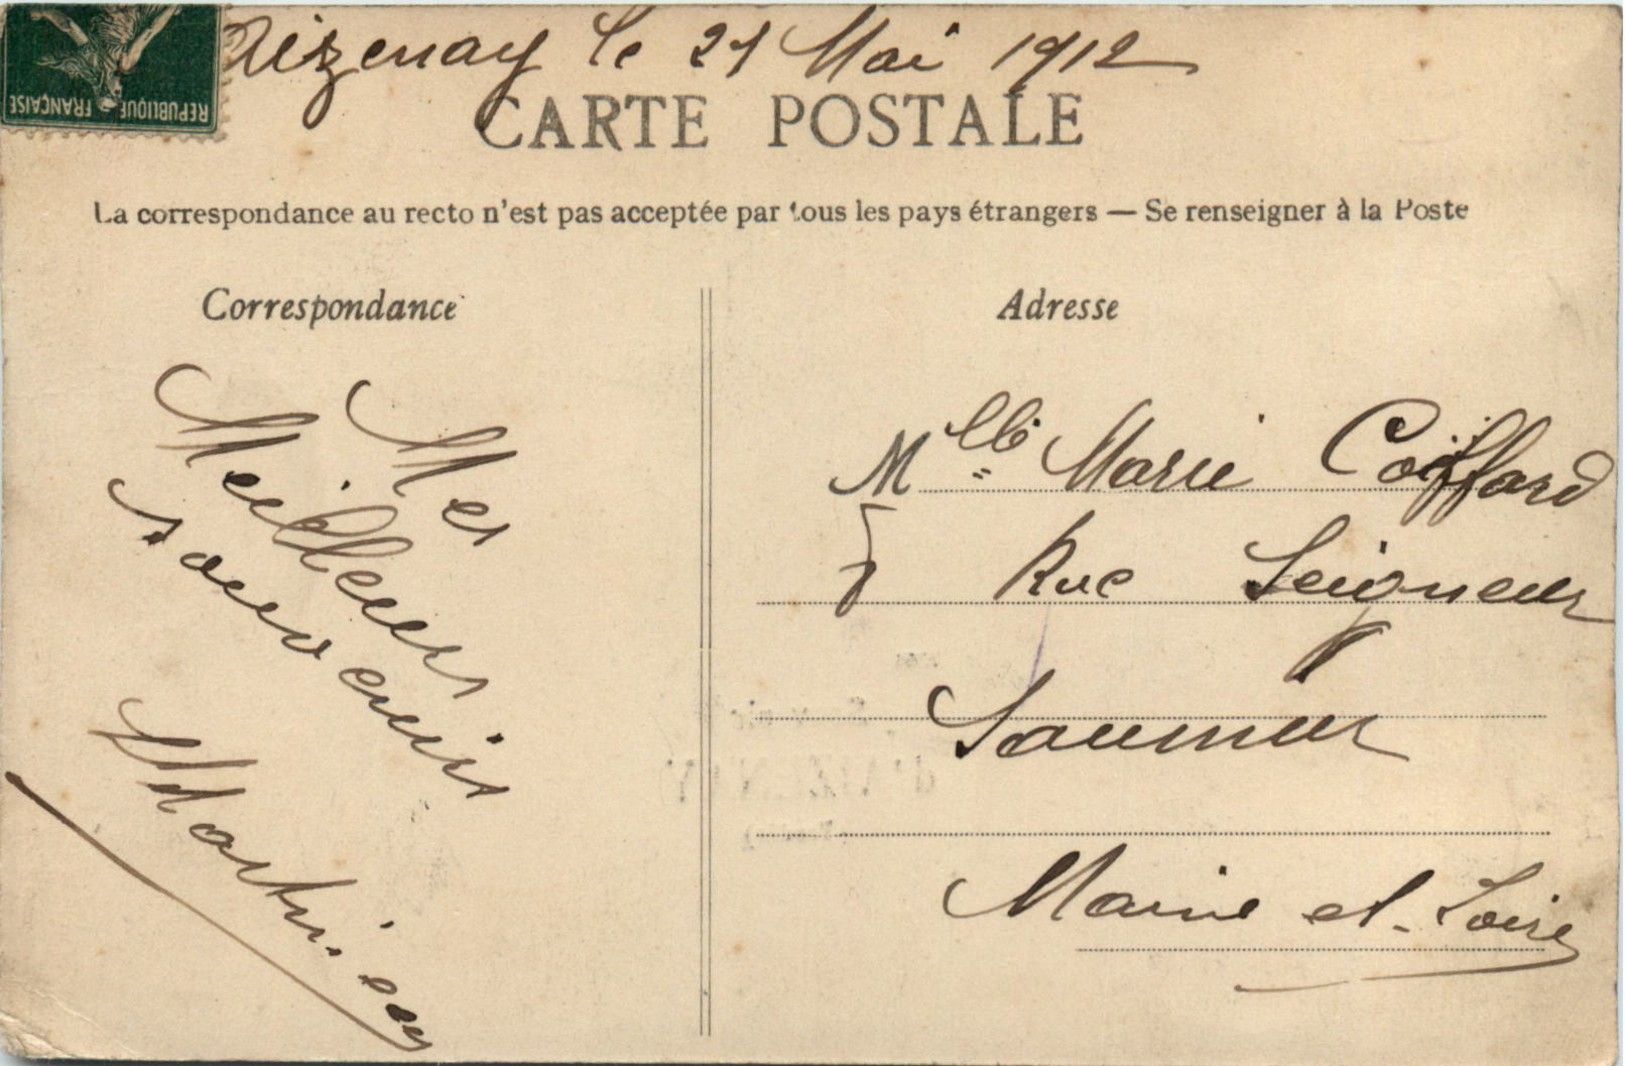 Aizenay le 21 Mai 1912
REPUBLIQUE FRANÇAISE
CARTE POSTALE
La correspondance au recto n'est pas acceptée par tous les pays étrangers — Se renseigner à la Poste
Correspondance
Mes
Meilleurs
souvenirs
Adresse
Mlle Marie Coiffard
5 Rue Seigneur
Saumur
Maine et-Loire